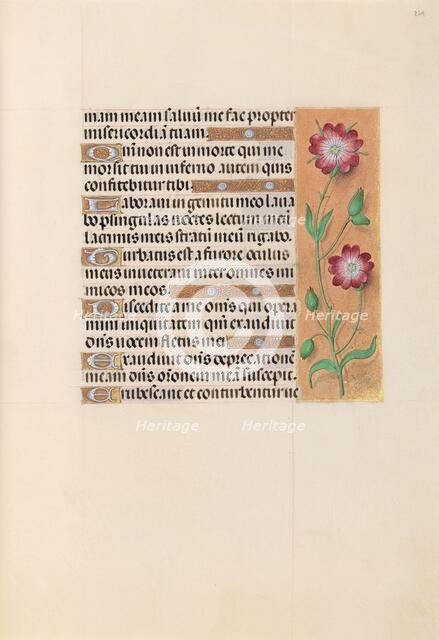 211
mam meam salvū me fac propter
misericordiā tuam.
Qm̄ non est in morte qui me
mor sit tui in inferno autem quis
confitebitur tibi.
Laboravi in gemitu meo lava
bo per singulas noctes lectum meū
lacrimis meis stratū meū rigabo.
Turbatus est a furore oculus
meus inveteravi inter omnes ini
micos meos.
Discedite a me om̄s qui opera
mini iniquitatem qm̄ exaudivit
dn̄s vocem fletus mei
Exaudivit dn̄s deprecationē
meam dn̄s or̄onem meā suscepit.
Erubescant et conturbentur ve
Heritage Heritage
Heritage Heritage